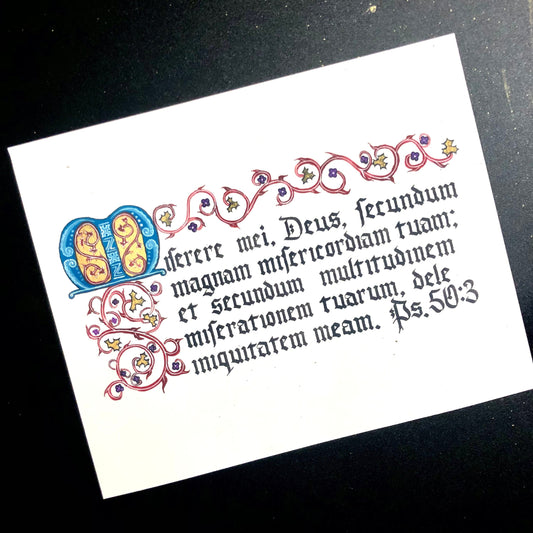 Miſerere mei, Deus, ſecundum
magnam miſericordiam tuam;
et secundum multitudinem
miſerationem tuarum, dele
iniquitatem meam. Ps. 50:3